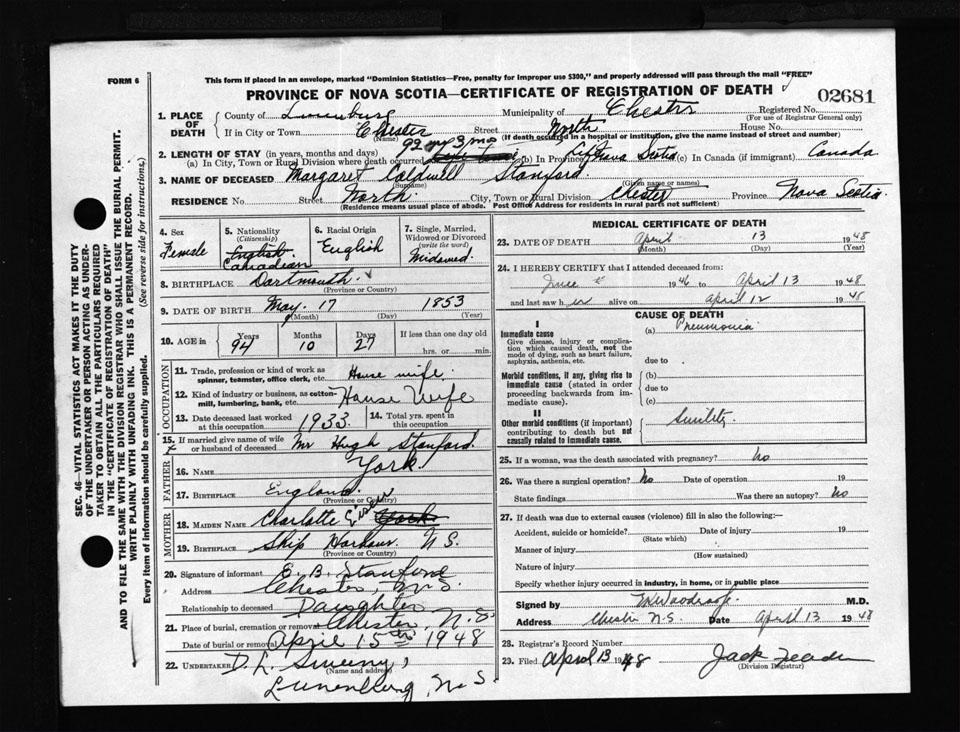 FORM 6
This form if placed in an envelope, marked "Dominion Statistics—Free, penalty for improper use $300," and properly addressed will pass through the mail "FREE"
PROVINCE OF NOVA SCOTIA—CERTIFICATE OF REGISTRATION OF DEATH
02681
1. PLACE OF DEATH
County of Lunenburg Municipality of Chester Registered No.
(For use of Registrar General only)
If in City or Town Chester Street North House No.
(Name) (If death occurred in a hospital or institution, give name instead of street and number)
92 yr 3 mo
2. LENGTH OF STAY (in years, months and days)
(a) In City, Town or Rural Division where death occurred (b) In Province Life Nova Scotia (c) In Canada (if immigrant) Canada
3. NAME OF DECEASED Margaret Caldwell Stanford
(Surname) (Given name or names)
RESIDENCE No. Street North City, Town or Rural Division Chester Province Nova Scotia
(Residence means usual place of abode. Post Office Address for residents in rural parts not sufficient)
4. Sex
Female
5. Nationality
(Citizenship)
English
Canadian
6. Racial Origin
English
7. Single, Married, Widowed or Divorced
(write the word)
Widowed
8. BIRTHPLACE Dartmouth
(Province or Country)
9. DATE OF BIRTH May 17 1853
(Month) (Day) (Year)
10. AGE in
Years
94
Months
10
Days
27
If less than one day old
hrs. or min.
OCCUPATION
11. Trade, profession or kind of work as spinner, teamster, office clerk, etc. House wife
12. Kind of industry or business, as cotton-mill, lumbering, bank, etc. House Wife
13. Date deceased last worked at this occupation 1933
14. Total yrs. spent in this occupation
15. If married give name of wife or husband of deceased Mr Hugh Stanford
FATHER
16. Name York
17. Birthplace England
(Province or Country)
MOTHER
18. MAIDEN NAME Charlotte York
19. BIRTHPLACE Ship Harbour N S.
(Province or Country)
20. Signature of informant E. B. Stanford
Address Chester, N.S.
Relationship to deceased Daughter
21. Place of burial, cremation or removal Chester N.S
Date of burial or removal April 15th 1948
22. UNDERTAKER D. L. Sweeny,
(Name and address)
Lunenburg, N. S.
MEDICAL CERTIFICATE OF DEATH
23. DATE OF DEATH April 13 1948
(Month) (Day) (Year)
24. I HEREBY CERTIFY that I attended deceased from:
June 1946 to April 13 1948
and last saw her alive on April 12 1948
CAUSE OF DEATH
I
Immediate cause
Give disease, injury or complication which caused death, not the mode of dying, such as heart failure, asphyxia, asthenia, etc.
(a) Pneumonia
due to
Morbid conditions, if any, giving rise to immediate cause (stated in order proceeding backwards from immediate cause).
(b)
due to
(c)
II
Other morbid conditions (if important) contributing to death but not causally related to immediate cause.
Senility
25. If a woman, was the death associated with pregnancy? No
26. Was there a surgical operation? No Date of operation 19
State findings Was there an autopsy? No
27. If death was due to external causes (violence) fill in also the following:—
Accident, suicide or homicide? Date of injury 19
(State which)
Manner of injury
(How sustained)
Nature of injury
Specify whether injury occurred in industry, in home, or in public place
Signed by M.D.
Address Chester N.S. Date April 13 1948
28. Registrar's Record Number
23. Filed April 13 1948 Jack
(Division Registrar)
SEC. 46—VITAL STATISTICS ACT MAKES IT THE DUTY
OF THE UNDERTAKER OR PERSON ACTING AS UNDER-
TAKER TO OBTAIN ALL THE PARTICULARS REQUIRED
IN THE "CERTIFICATE OF REGISTRATION OF DEATH"
AND TO FILE THE SAME WITH THE DIVISION REGISTRAR WHO SHALL ISSUE THE BURIAL PERMIT.
WRITE PLAINLY WITH UNFADING INK. THIS IS A PERMANENT RECORD.
Every item of information should be carefully supplied. (See reverse side for instructions.)